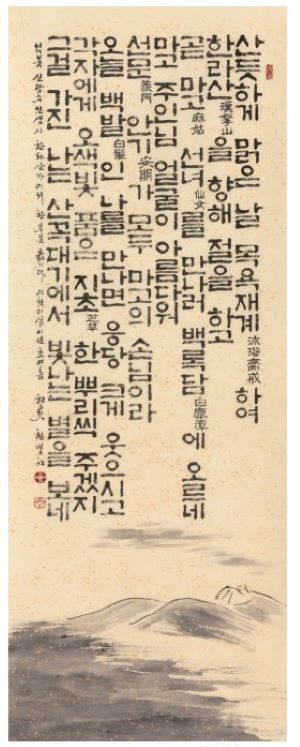 산듯하게 맑은 날 목욕재계 沐浴齋戒 하여
한라산 漢拏山 을 향해 절을 하고
곧 마고 麻姑 선녀 仙女 를 만나러 백록담 白鹿潭 에 오르네
마고 주인님 얼굴이 아름다워
선문 羨門 안기 安期 가 모두 마고의 손님이라
오늘 백발 白髮 인 나를 만나면 응당 크게 웃으시고
각자에게 오색빛 품은 지초 芝草 한 뿌리씩 주겠지
그걸 가진 나는 산꼭대기에서 빛나는 별을 보네
석북 신광수 선생 시 한라산가에서